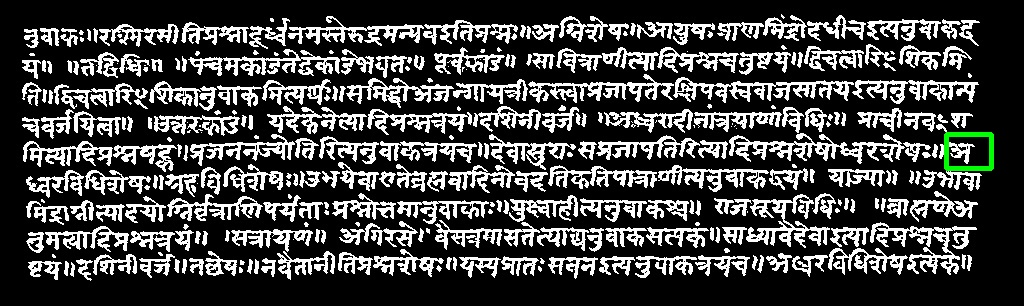 नुवाकः॥रश्मिरसीतिप्रश्नादूर्ध्वंनमस्तेरुद्रमन्यवइतिप्रश्नः॥अग्निशेषः॥आयुषःप्राणमिंद्रोदधीचइत्यनुवाकद्व
यं॥ ॥तद्विधिः॥ ॥पंचमकांडंतेद्वेकांडेभयतः॥ पूर्वकांडं॥ ॥सावित्राणीत्यादिप्रश्नचतुष्टयं॥द्विचत्वारिꣳशिकमि
ति॥द्विचत्वारिꣳशिकानुवाकमित्यर्थः॥समिद्धोअंजन्गायत्रीकस्त्वाप्रजापतेरक्षिपवस्ववाजसातयइत्यनुवाकान्पं
चवर्जयित्वा॥ ॥उत्तरकांडं॥ यदेकेनेत्यादिप्रश्नत्रयं॥दशिनीवर्जं॥ ॥अध्वरादीनांत्रयाणांविधिः॥ प्राचीनवꣳश
मित्यादिप्रश्नषट्कं॥प्रजननंज्योतिरित्यनुवाकत्रयंच॥देवासुराःसप्रजापतिरित्यादिप्रश्नशेषोध्वरशेषः॥अ
ध्वरविधिशेषः॥ग्रहविधिशेषः॥उभयेवाएतेब्रह्मवादिनोवदंतिकतिपात्राणीत्यनुवाकद्वयं॥ याज्या॥ ॥उभावा
मिंद्राग्नीत्यादयोग्निर्वृत्राणिपर्यंताःप्रश्नोत्तमानुवाकाः॥युक्ष्वाहीत्यनुवाकश्च॥ राजसूयविधिः॥ ॥ब्राह्मणेअ
नुमत्यादिप्रश्नत्रयं॥ ॥सत्रायणं॥ अंगिरसो वैसत्रमासतेत्याद्यनुवाकसप्तकं॥साध्यावैदेवाइत्यादिप्रश्नचतु
ष्टयं॥दशिनीवर्जं॥तच्छेषः॥नवैतानीतिप्रश्नशेषः॥यस्यप्रातःसवनइत्यनुवाकत्रयंच॥अध्वरविधिशेषइत्येके॥